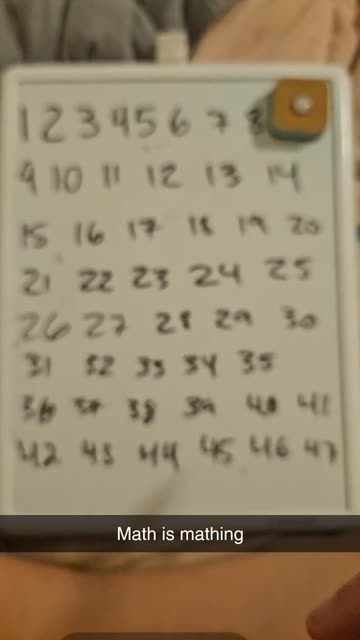 1 2 3 4 5 6 7 8
9 10 11 12 13 14
15 16 17 18 19 20
21 22 23 24 25
26 27 28 29 30
31 32 33 34 35
36 37 38 39 40 41
42 43 44 45 46 47
Math is mathing